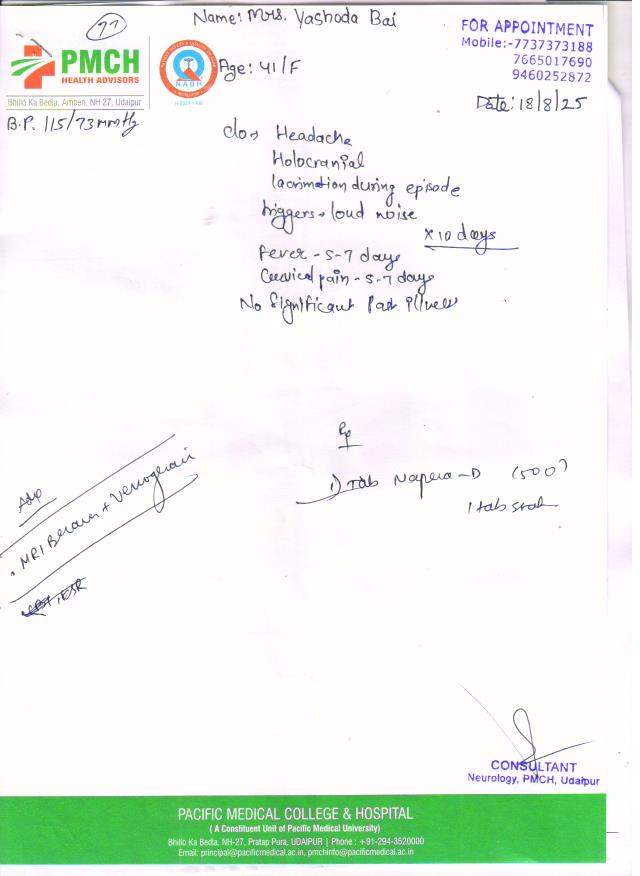 77
Name: Mrs. Yashoda Bai
FOR APPOINTMENT
Mobile:-7737373188
7665017690
9460252872
PMCH
HEALTH ADVISORS
NABH
H-2024-1408
Age: 41/F
Bhillo Ka Bedla, Amberi, NH 27, Udaipur
Date: 18/8/25
B.P. 115/73 mmHg
c/o → Headache
Holocranial
lacrimation during episode
triggers → loud noise
x 10 days
Fever - 5-7 days
Cervical pain - 5-7 days
No Significant Past illness
Rp
1) Tab Napera-D (500)
1 tab stat
Adv
MRI Brain + Venogram
ESR
CONSULTANT
Neurology, PMCH, Udaipur
PACIFIC MEDICAL COLLEGE & HOSPITAL
( A Constituent Unit of Pacific Medical University)
Bhillo Ka Bedla, NH-27, Pratap Pura, UDAIPUR | Phone : +91-294-3520000
Email: principal@pacificmedical.ac.in, pmchinfo@pacificmedical.ac.in